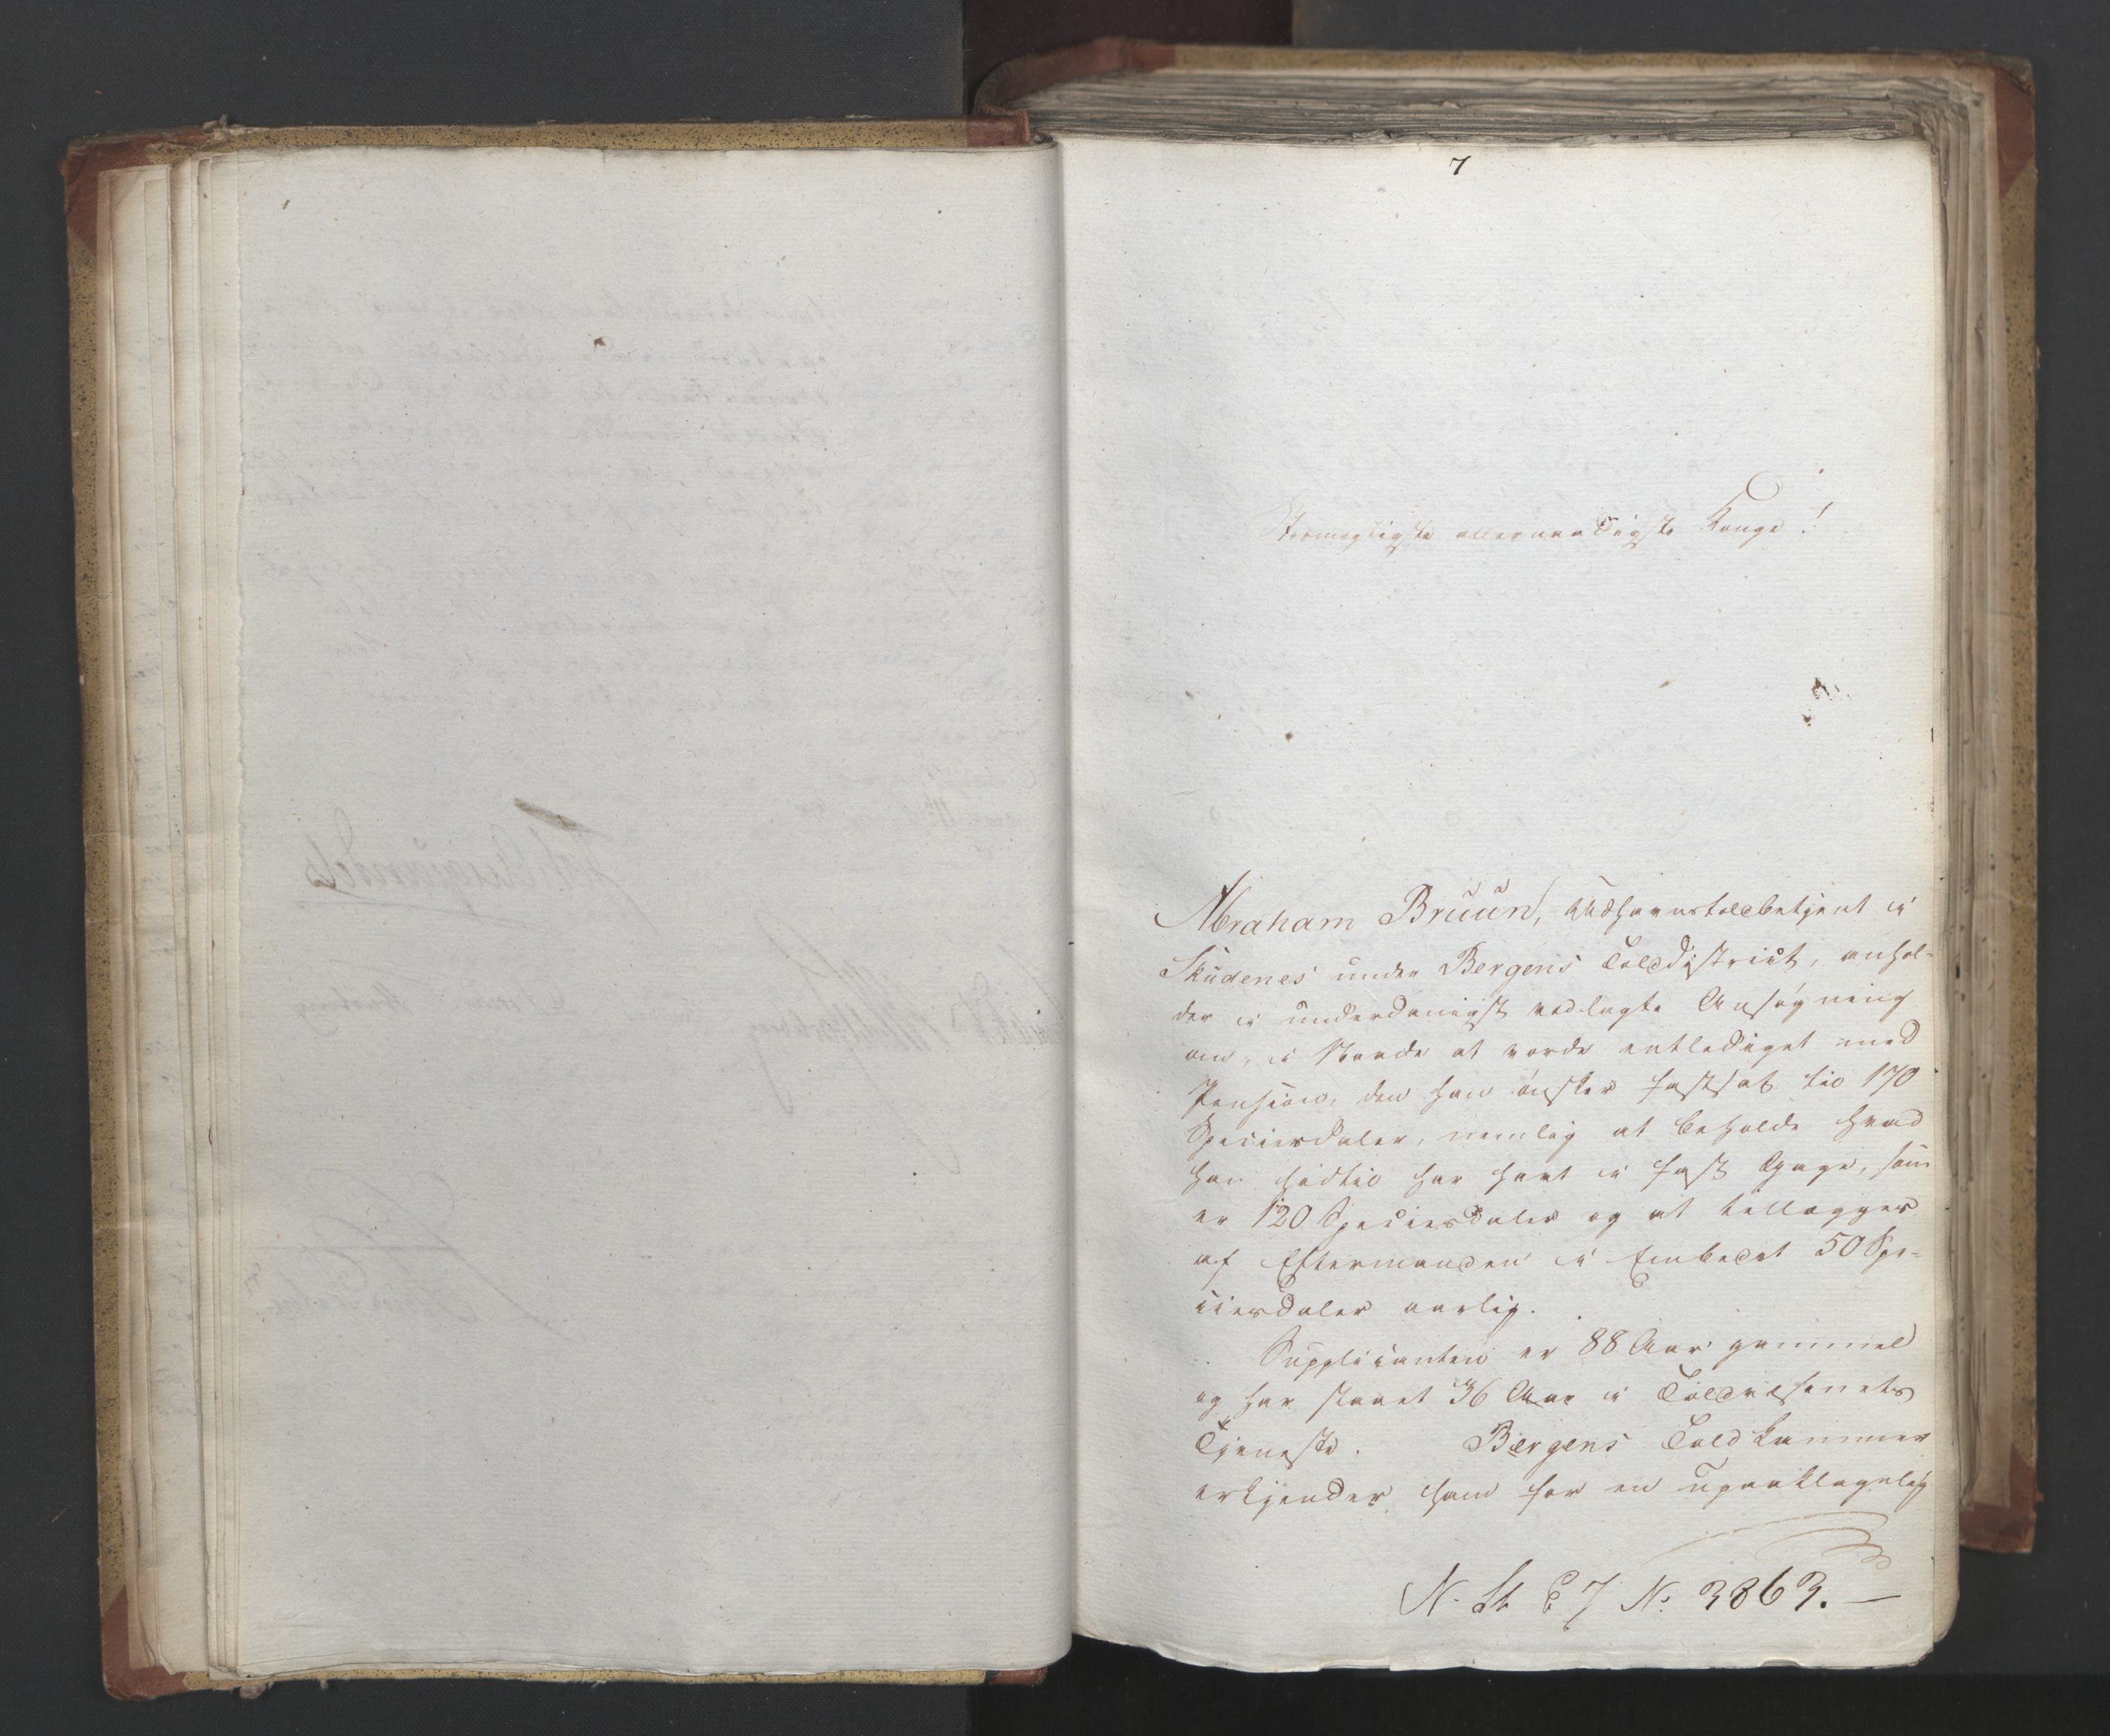 7
Stormægtigste allernaadigste Konge!
Abraham Bruun, Udhavnstoldbetjent i
Skudenes under Bergens Tolddistrict, anhol-
der i underdanigst vedlagte Ansøgning
om, i Naade at vorde entlediget med
Pension, den han ønsker fastsat til 170
Speciesdaler, nemlig at beholde hvad
han hidtil har havt i fast Gage, som
er 120 Speciesdaler og at tillægges
af Eftermanden i Embedet 50 Spe-
ciesdaler aarlig.
Supplicanten er 88 Aar gammel
og har staaet 36 Aar i Toldvæsenets
Tjeneste. Bergens Toldkammer
erkjender ham for en upaaklagelig
N. St 7 No 3863.